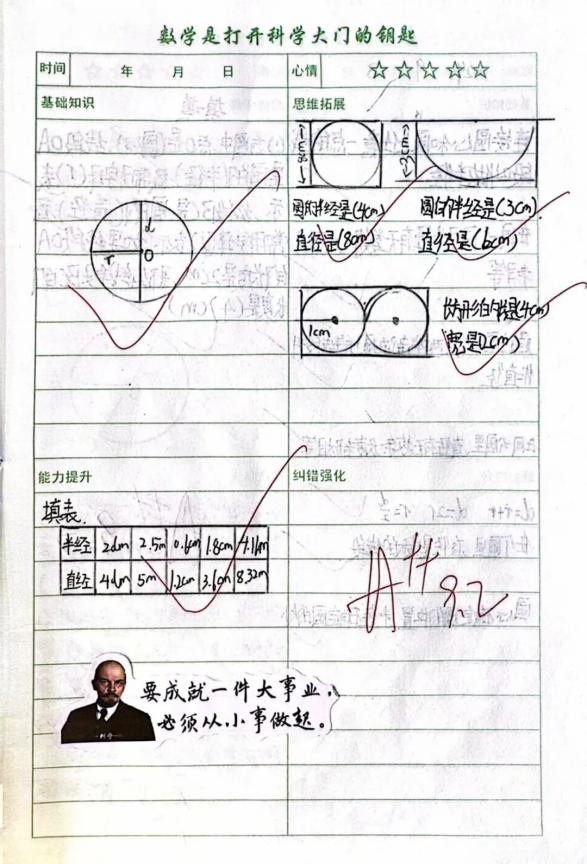 数学是打开科学大门的钥匙
时间 年 月 日 心情
基础知识
d
r O
思维拓展
8cm 3cm
圆的半径是(4cm) 圆的半径是(3cm)
直径是(8cm) 直径是(6cm)
1cm
长方形的长是(4cm)
宽是(2cm)
能力提升
填表.
半径 2dm 2.5m 0.6cm 1.8cm 4.16m
直径 4dm 5m 1.2cm 3.6cm 8.32m
纠错强化
A++ 9.2
要成就一件大事业,
必须从小事做起。